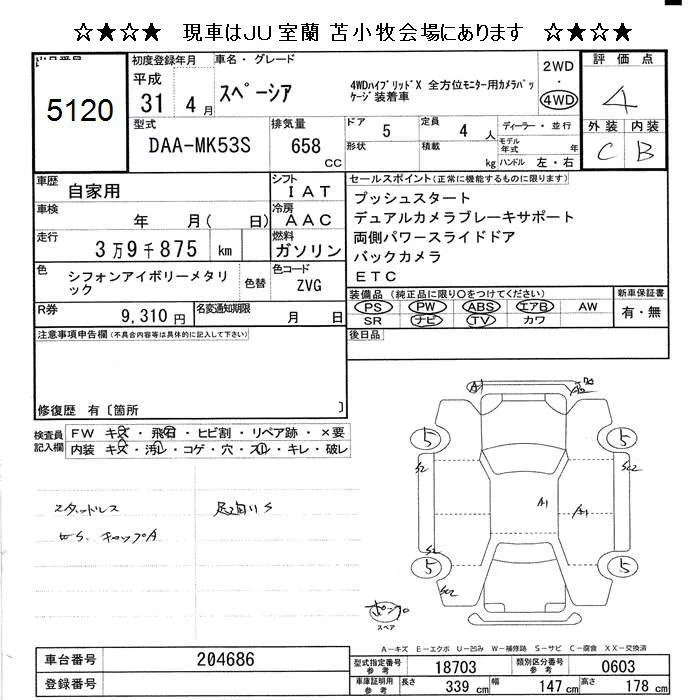 ☆★☆★ 現車はJU室蘭 苫小牧会場にあります ☆★☆★
5120
初度登録年月
平成
31 4月
車名・グレード
スペーシア
4WDハイブリッドX 全方位モニター用カメラパッ
ケージ装着車
2WD
・
4WD
評価点
4
外装 内装
C B
型式
DAA-MK53S
排気量
658
cc
ドア
5
定員
4 人
ディーラー・並行
形状
積載
kg
モデル
年式 年
ハンドル 左・右
車歴
自家用
シフト
IAT
車検
年 月( 日)
冷房
AAC
走行
3万9千875 km
燃料
ガソリン
色
シフォンアイボリーメタリ
ック
色替
色コード
ZVG
R券
9,310 円
名変通知期限
月 日
セールスポイント(正常に機能するものに限ります)
プッシュスタート
デュアルカメラブレーキサポート
両側パワースライドドア
バックカメラ
ETC
装備品 (純正品に限り○をつけてください)
PS PW ABS エアB AW
SR ナビ TV カワ
新車保証書
有・無
注意事項申告欄(不具合内容等は具体的に記入して下さい)
後日品
修復歴 有〔箇所 〕
検査員
記入欄
FW キズ・飛石・ヒビ割・リペア跡・×要
内装 キズ・汚レ・コゲ・穴・スレ・キレ・破レ
スタッドレス
足廻りS
キャップA
A1
5
5
S2
SC2
A1
A1
S2
SC2
5
5
スペア
A-キズ E-エクボ U-凹み W-補修跡 S-サビ C-腐食 XX-交換済
車台番号
204686
登録番号
型式指定番号
参考
18703
類別区分番号
参考
0603
車庫証明用
参考
長さ
339 cm
幅
147 cm
高さ
178 cm